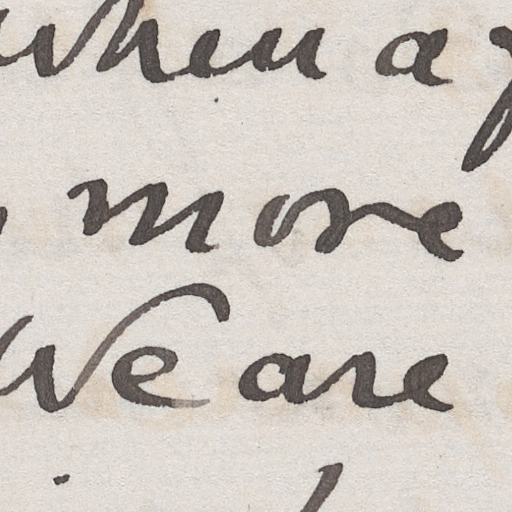 when a
more
We are